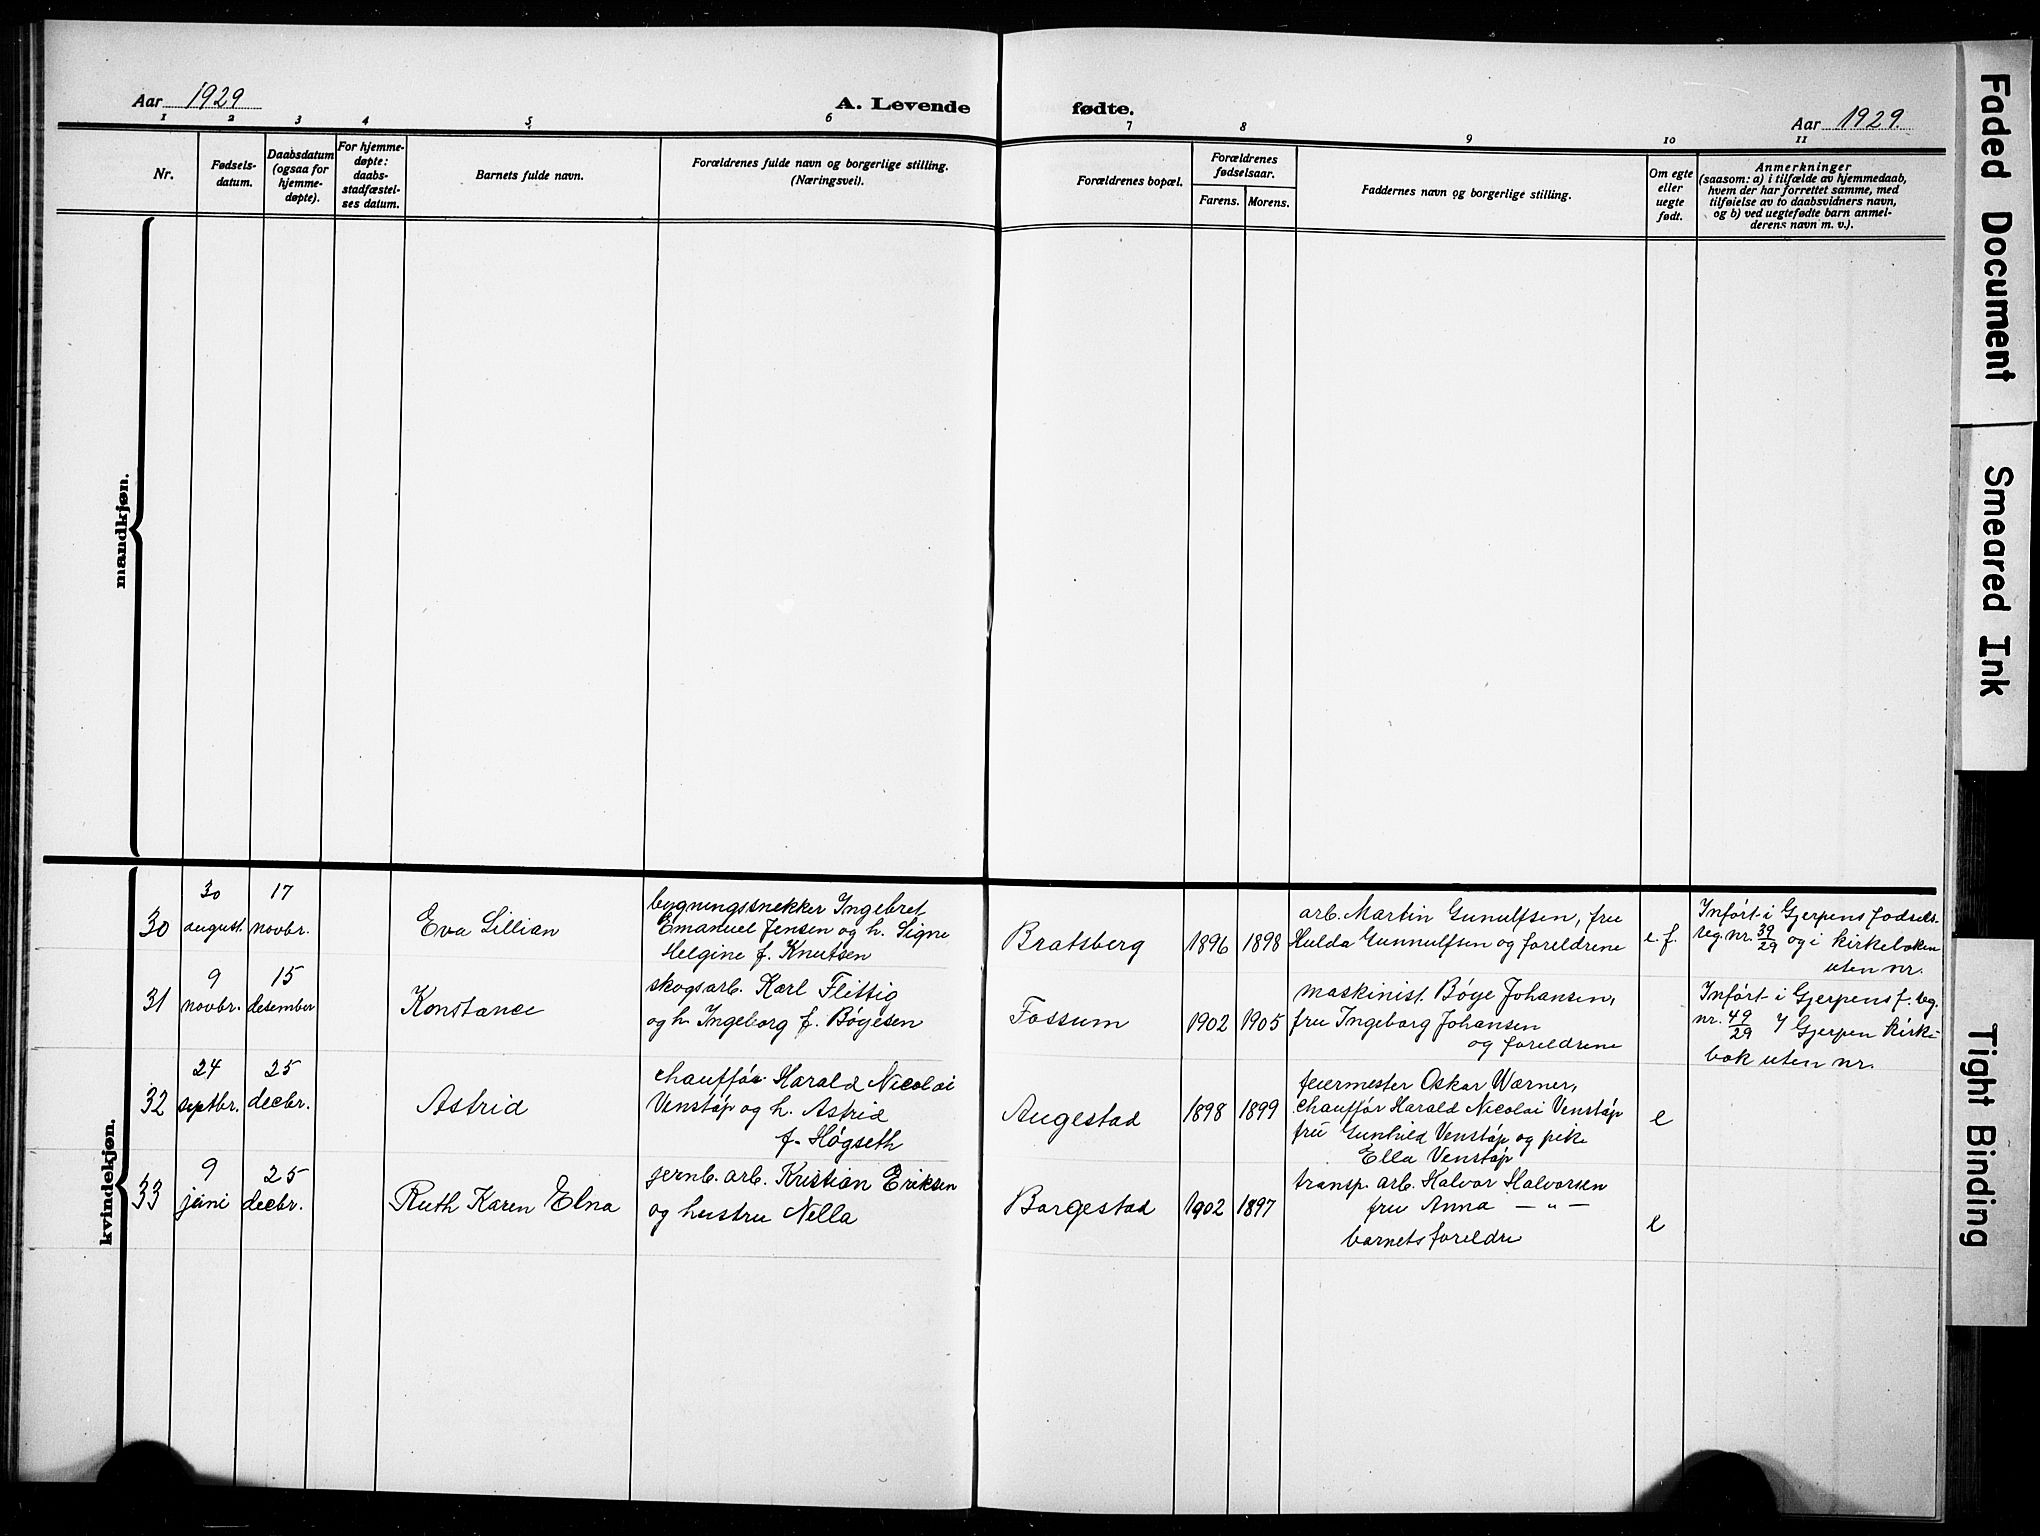 Aar 1929
A. Levende
fødte.
Aar 1929.
1 2 3 4 5 6 7 8 9 10 11
Nr.
Fødsels-
datum.
Daabsdatum
(ogsaa for
hjemme-
døpte).
For hjemme-
døpte:
daabs-
stadfæstel-
ses datum.
Barnets fulde navn.
Forældrenes fulde navn og borgerlige stilling.
(Næringsvei).
Forældrenes bopæl.
Forældrenes
fødselsaar.
Farens. Morens.
Faddernes navn og borgerlige stilling.
Om egte
eller
uegte
født.
Anmerkninger
(saasom: a) i tilfælde av hjemmedaab,
hvem der har forrettet samme, med
tilføielse av to daabsvidners navn,
og b) ved uegtefødte barn anmel-
derens navn m. v.).
mandkjøn.
kvindekjøn.
30
30
august.
17
novbr.
Eva Lillian
bygningssnekker Ingebret
Emanuel Jensen og h. Signe
Helgine f. Knutsen
Bratsberg
1896
1898
arb. Martin Gunulfsen, fru
Hulda Gunnulfsen og foreldrene
e. f.
Inført i Gjerpens fødsels-
reg. nr. 39/29 og i kirkeboken
uten nr.
31
9
novbr.
15
desember
Konstance
skogsarb. Karl Flittig
og h. Ingeborg f. Bøyesen
Fossum
1902
1905
maskinist. Bøye Johansen,
fru Ingeborg Johansen
og foreldrene
Inført i Gjerpens f. reg.
nr. 49/29 I Gjerpen kirke-
bok uten nr.
32
24
septbr.
25
decbr.
Astrid
chauffør Harald Nicolai
Venstøp og h. Astrid
f. Høgseth
Augestad
1898
1899
feiermester Oskar Wærner,
chauffør Harald Nicolai Venstøp
fru Gunhild Venstøp og pike
Ella Venstøp
e
33
9
juni
25
decbr.
Ruth Karen Elna
jernb. arb. Kristian Eriksen
og hustru Nella
Borgestad
1902
1897
transp. arb. Halvor Halvorsen
fru Anna — " —
barnets foreldre
e
Faded Document
Smeared Ink
Tight Binding